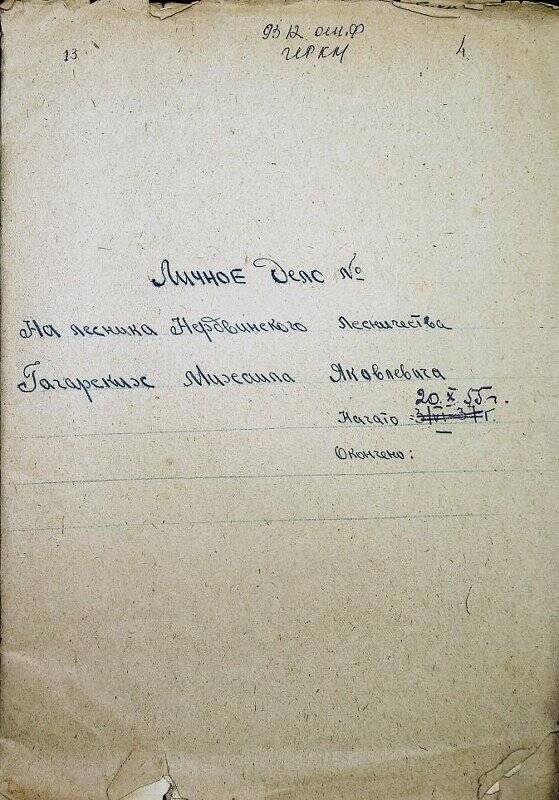 9312 оп.ф
13 ЧРКМ 4
Личное Дело №
На лесника Нердвинского лесничества
Гагарских Михаила Яковлевича
20.X.55 г.
Начато: 3/VI-37 г.
Окончено: